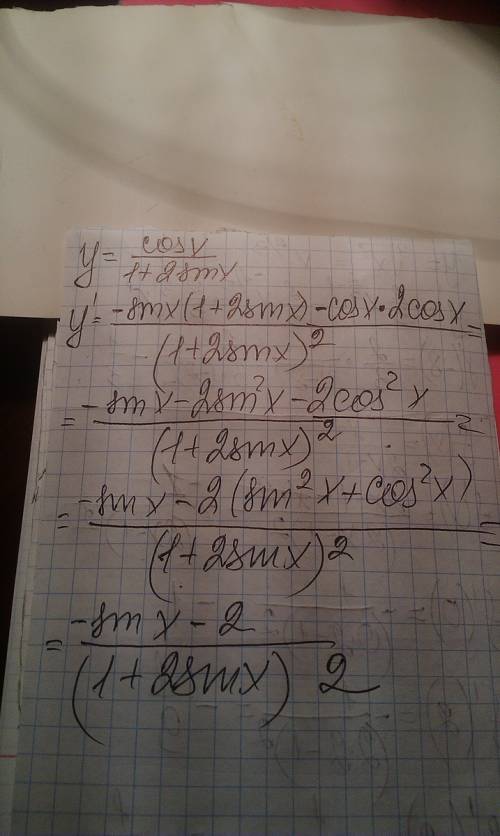 y = cosx / 1+2sinx
y' = -sinx(1+2sinx)-cosx·2cosx / (1+2sinx)² =
= -sinx-2sin²x-2cos²x / (1+2sinx)² =
= -sinx-2(sin²x+cos²x) / (1+2sinx)² =
= -sinx-2 / (1+2sinx)²